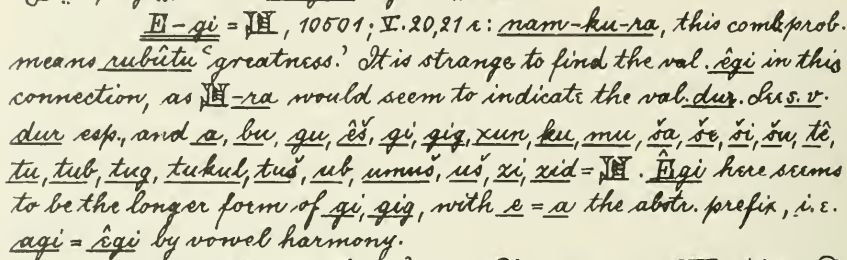 E-gi = 𒆪, 10501; V. 20,21 c: nam-ku-ra, this comb. prob.
means rubûtu 'greatness.' It is strange to find the val. êgi in this
connection, as 𒆪-ra would seem to indicate the val. dur. See s.v.
dur esp., and a, bu, gu, êš, gi, gig, xun, ku, mu, ša, še, ši, šu, tê,
tu, tub, tug, tukul, tuš, ub, umuš, uš, xi, xid = 𒆪. Êgi here seems
to be the longer form of gi, gig, with e = a the abstr. prefix, i.e.
agi = êgi by vowel harmony.